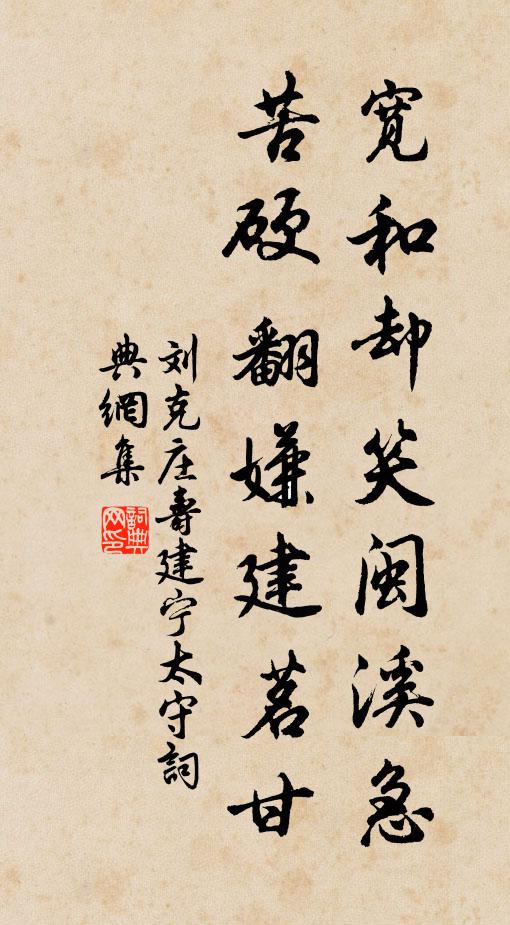 寛和却笑闽溪急
苦硬翻嫌建茗甘
刘克庄寿建宁太守詞
典網集
詞典網印